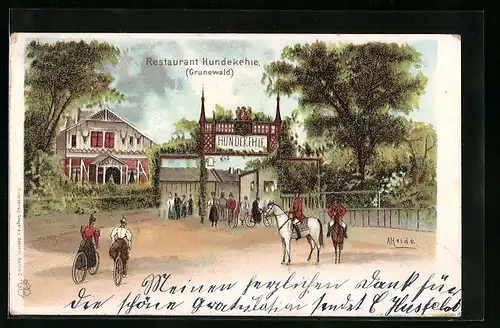 Restaurant Hundekehle,
(Grunewald)
HUNDEKEHLE
Meinen herzlichen Dank für
die schöne Gratulation sendet